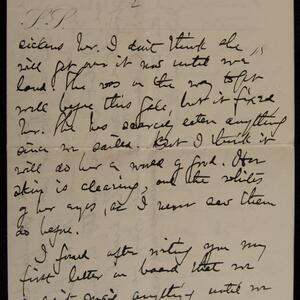 2
sickens her. I don't think she
will get over it now until we
land. She was in the way to get
well before this gale, but it fixed
her. She has scarcely eaten anything
since we sailed. But I think it
will do her a world of good. Her
skin is clearing, and the whites
of her eyes, as I never saw them
do before.
I found after writing you my
first letter on board that we
anything until we